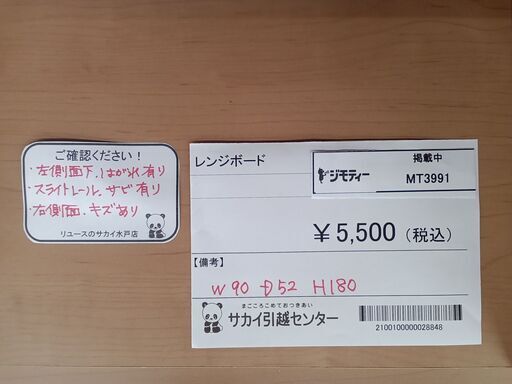 ご確認ください!
・左側面下、はがれ有り
・スライドレール、サビ有り
・右側面、キズあり
リユースのサカイ水戸店
レンジボード
ジモティー
掲載中
MT3991
¥5,500(税込)
【備考】
W90 D52 H180
まごころこめておつきあい
サカイ引越センター
2100100000028848